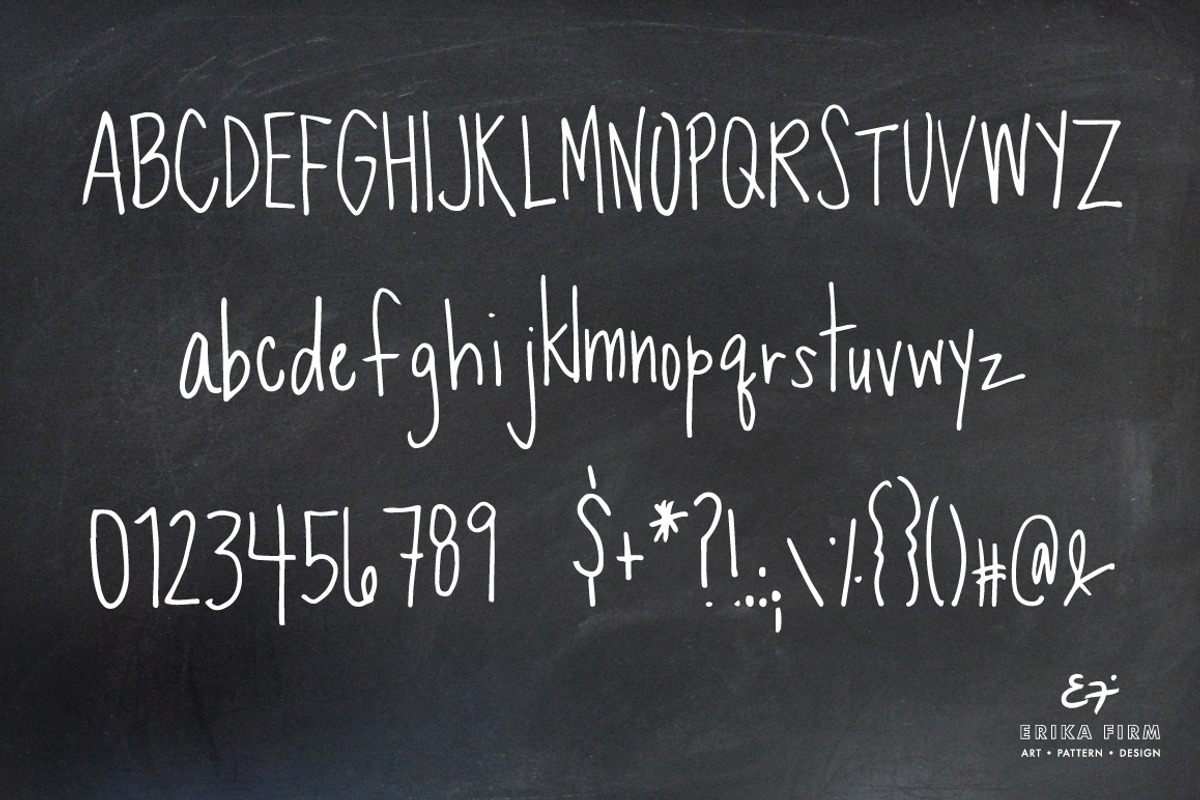 ABCDEFGHIJKLMNOPQRSTUVWYZ
abcdefghijklmnopqrstuvwyz
0123456789 $+*?!.:;\%{}()#@&
Ef
ERIKA FIRM
ART • PATTERN • DESIGN